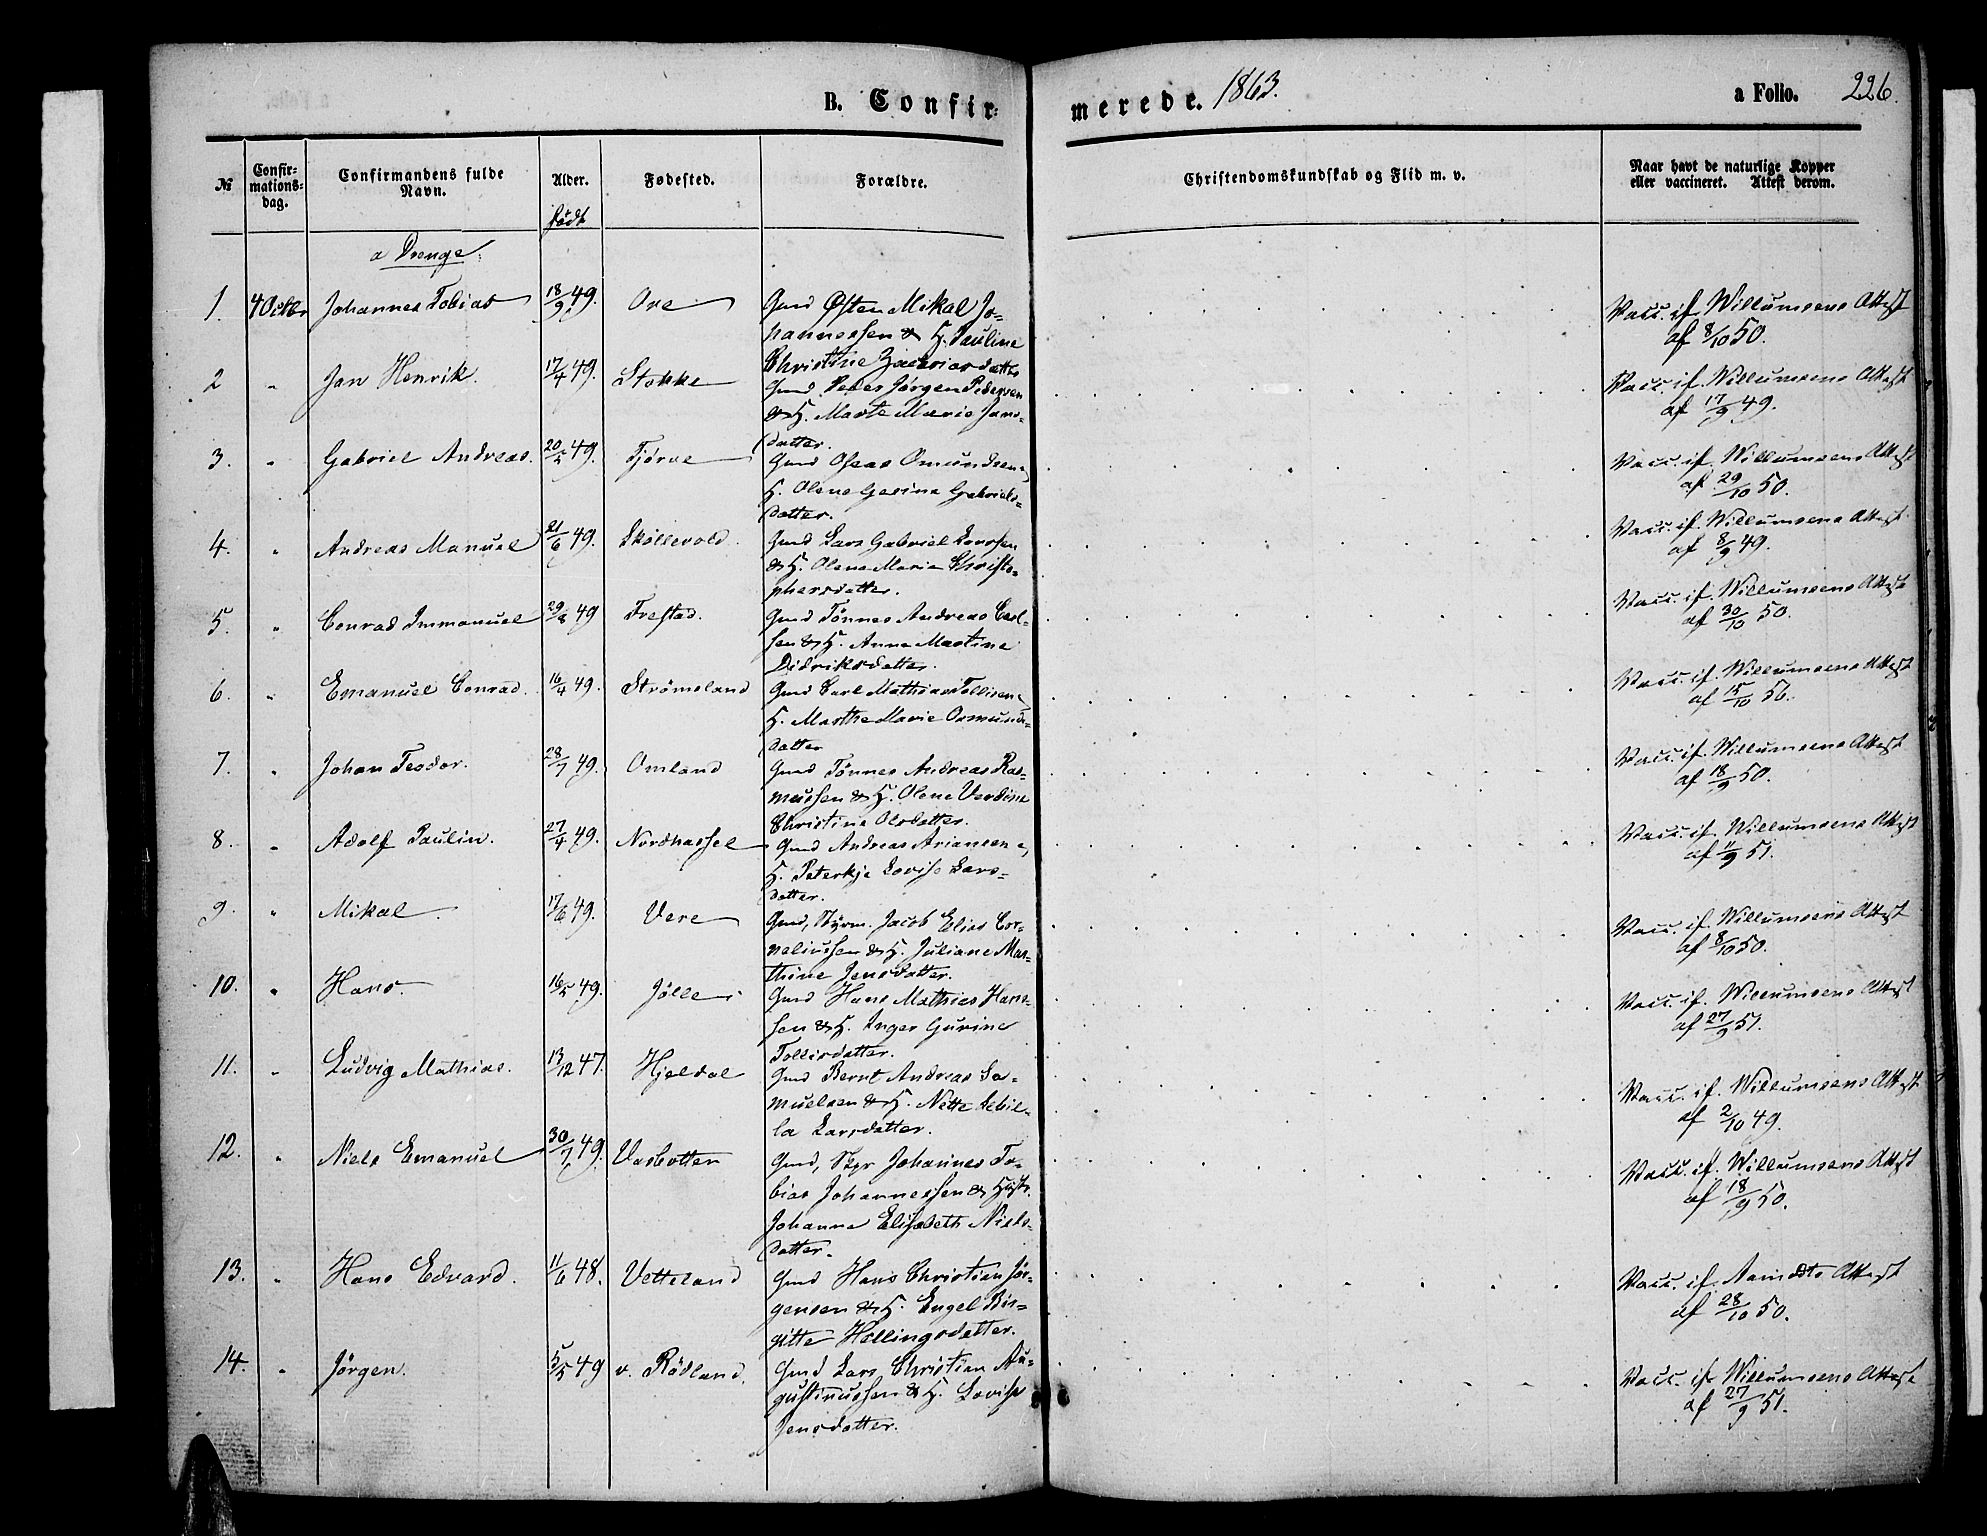 B. Confir-
merede. 1863.
a Folio. 226.
№
Confir-
mations-
dag.
Confirmandens fulde
Navn.
Alder.
Født
Fødested.
Forældre.
Christendomskundskab og Flid m. v.
Naar havt de naturlige Kopper
eller vaccineret. Attest derom.
a Drenge.
1. 4 Octbr Johannes Tobias 18/9 49. Ore Gmd Østen Mikal Jo-
hannessen & H. Pauline
Christine Zachrias datter
Vacc. if. Willumsens Attest
af 8/10 50.
2 " Jan Henrik. 17/4 49. Stokke Gmd Peder Jørgen Pedersen
& H. Marte Marie Jans-
datter.
Vacc. if. Willumsens Attest
af 17/9 49.
3. " Gabriel Andreas. 20/5 49. Tjørve Gmd Oseas Omundsen &
H. Olene Gesine Gabriels-
datter.
Vacc. if. Willumsens Attest
af 29/10 50.
4. " Andreas Manuel 21/6 49. Skollevold. Gmd Lars Gabriel Larssen
& H. Olene Marie Christo-
phersdatter.
Vacc. if. Willumsens Attest
af 8/9 49.
5. " Conrad Immanuel 49 Frestad. Gmd Tønnes Andreas Carl-
sen & H. Anne Martine
Didriksdatter.
Vacc. if. Willumsens Attest
af 30/10 50.
6. " Emanuel Conrad. 16/4 49. Strømsland Gmd Carl Mathias Tollisen &
H. Marthe Marie Osmunds-
datter
Vacc. if. Willumsens Attest
af 15/10 56.
7. " Johan Teodor. 28/7 49. Omland Gmd Tønnes Andreas Ras-
mussen & H. Olene Verdine
Christine Olsdatter.
Vacc. if. Willumsens Attest
af 18/9 50.
8. " Adolf Paulin. 27/4 49. Nordhassel Gmd Andreas Ariansen &
H. Peterkje Lovise Lars-
datter.
Vacc. if. Willumsens Attest
af 11/9 51.
9. " Mikal. 17/6 49. Vere Gmd, Styrm. Jacob Elias Cor-
neliussen & H. Juliane Mar-
thine Jensdatter.
Vacc. if. Willumsens Attest
af 8/10 50.
10. " Hans. 16/5 49. Jølle Gmd Hans Mathias Hans-
sen & H. Inger Gurine
Tollisdatter.
Vacc. if. Willumsens Attest
af 27/9 51.
11. " Ludvig Mathias. 13/12 47. Hjeldal Gmd Bernt Andreas Sa-
muelsen & H. Nette Sebil-
la Larsdatter.
Vacc. if. Willumsens Attest
af 2/10 49.
12. " Niels Emanuel 30/7 49. Vasbotten Gmd, Skpr Johannes To-
bias Johannessen & Hustr.
Johanne Elisabeth Niels-
datter.
Vacc. if. Willumsens Attest
af 18/9 50.
13. " Hans Edvard. 11/6 48. Vetteland Gmd Hans Christian Jør-
gensen & H. Engel Bir-
gitte Hellingsdatter.
Vacc. if. Attest
af 28/10 50.
14. " Jørgen. 5/5 49 v. Rødland. Gmd Lars Christian Au-
gustinussen & H. Lovise
Jensdatter.
Vacc. if. Willumsens Attest
af 27/9 51.